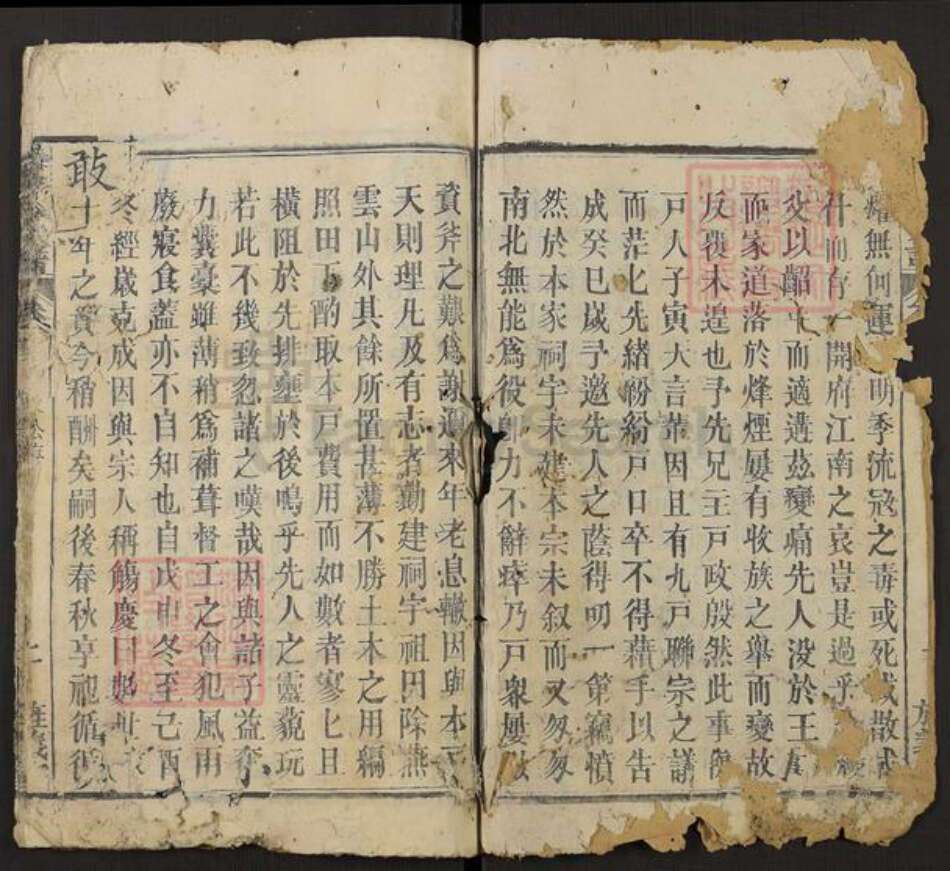 無何運 明季流寇之毒或死或散或
什而存一開府江南之哀豈是過乎
父以韶 而適遘茲變痛先人没於王
而家道落於烽煙屢有收族之舉而變故
反覆未遑也予先兄主戸政殷然此事與
戸人子寅大言輩因且有九戸聯宗之議
而茫匕先緒紛紛戸口卒不得藉手以告
成癸巳嵗予邀先人之蔭得叨一第竊憤
然於本家祠宇未建本宗未叙而又匆匆
南北無能爲役卽力不辭瘁乃戸衆屢
資斧之艱爲謝邇來年老息轍因與本
天則理凡及有志者勤建祠宇祖田除燕
雲山外其餘所置甚薄不勝土木之用編
照田丁酌取本戸費用而如數者寥匕且
橫阻於先排壅於後鳴乎先人之靈藐玩
若此不幾致忽諸之嘆哉因與諸子益奪
力囊槖雖薄稍爲補葺督工之會犯風雨
廢寢食蓋亦不自知也自戊申冬至己酉
冬經嵗克成因與宗人稱觴慶曰
敢十年之 今稍酬矣嗣後春秋享祀循徃